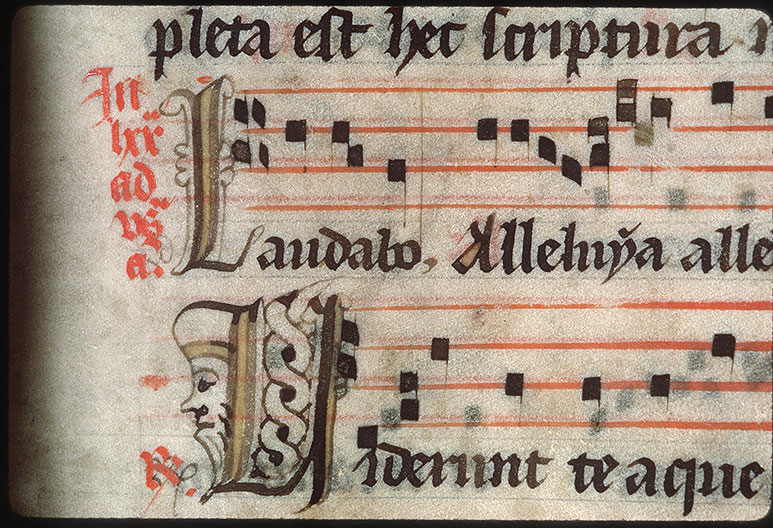 pleta est hec scriptura
In
lxx
ad
vs
a.
Laudabo. Alleluya alle
R. Viderunt te aque